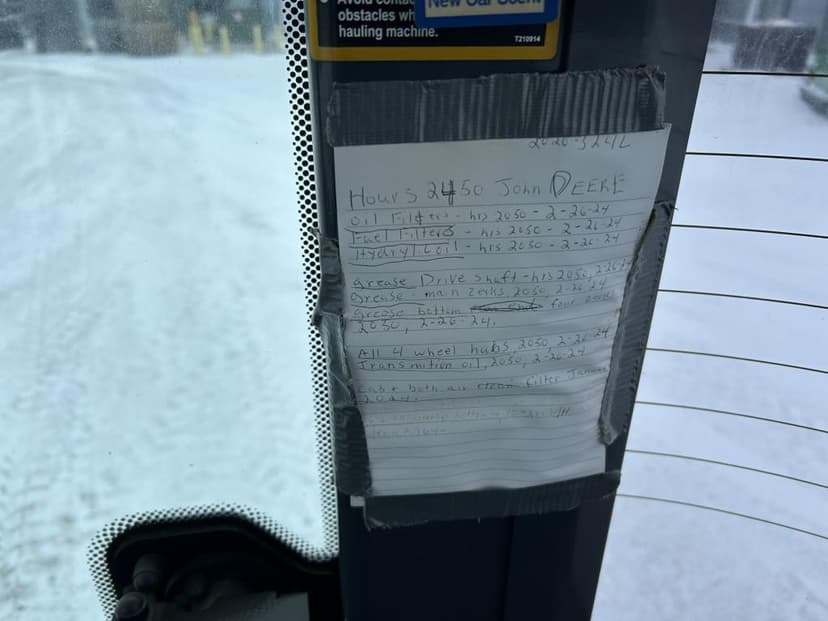 obstacles wh
hauling machine.
New Car Scent
T210914
2020-324L
Hours 2450 John DEERE
Oil Filters - hrs 2050 - 2-26-24
Fuel Filters - hrs 2050 - 2-26-24
Hydryl Coil - hrs 2050 - 2-26-24
Grease Drive Shaft - hrs 2050, 2-26-24
Grease - main Zerks, 2050, 2-26-24
Grease bottom four
2050, 2-26-24.
All 4 wheel hubs, 2050, 2-26-24
Transmition oil, 2050, 2-26-24
Cab + both air clean filter
2024.